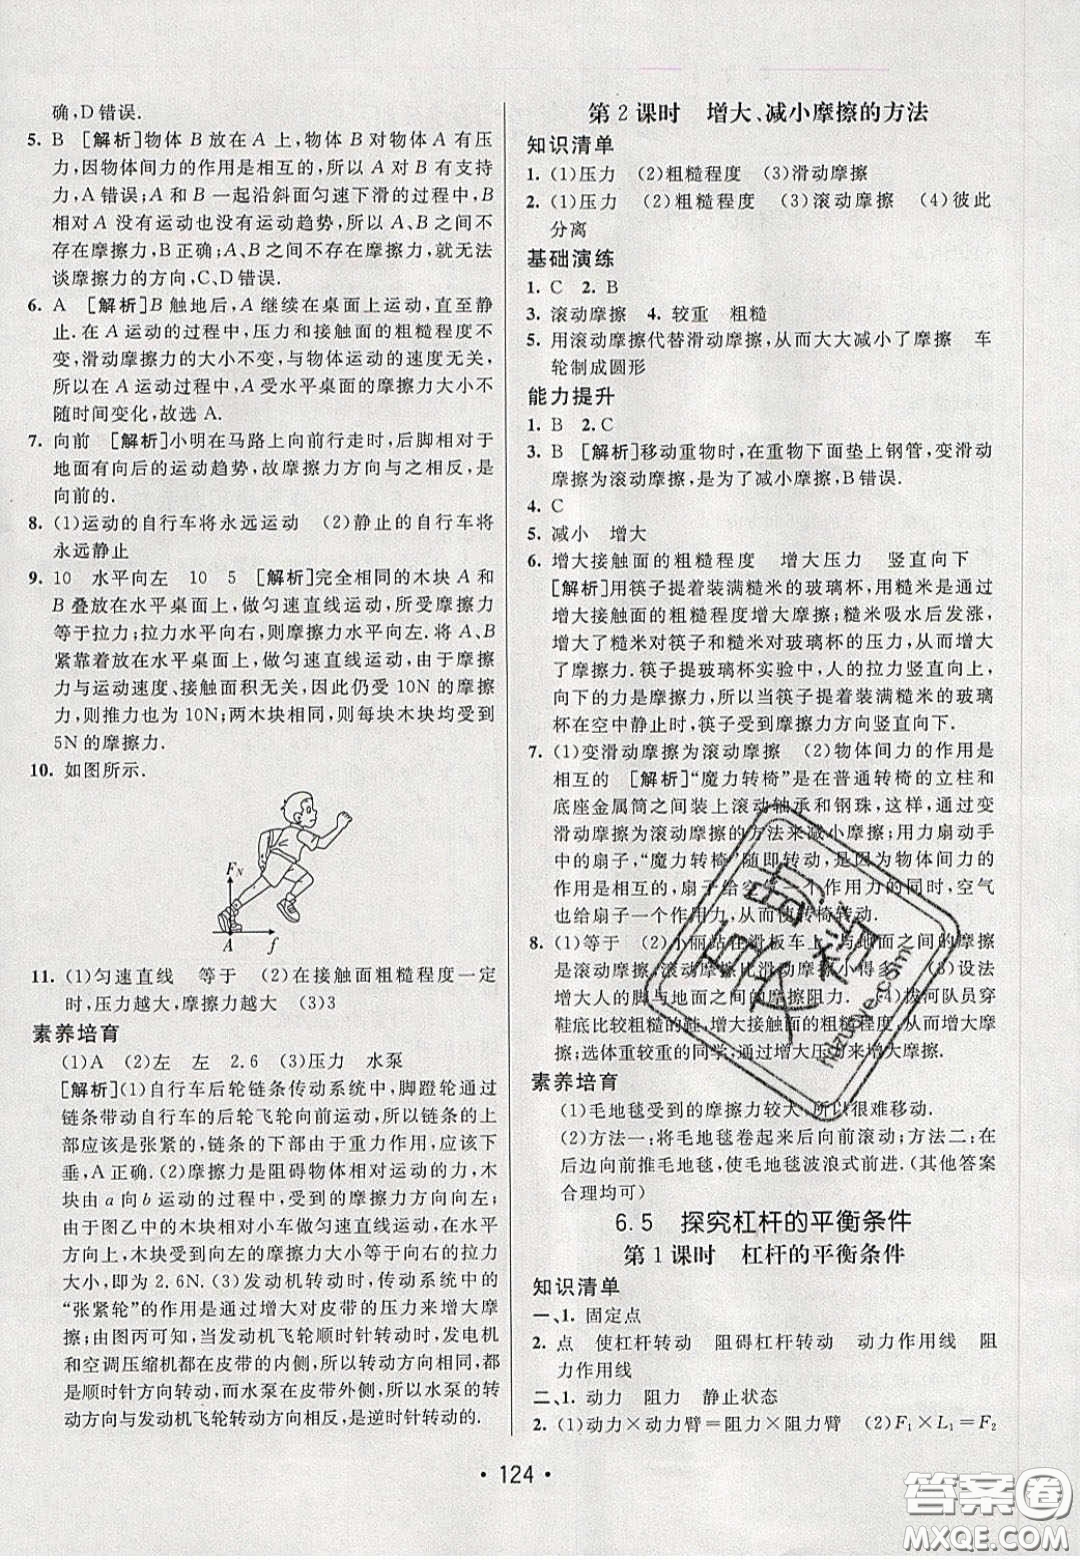 确,D错误.
5. B [解析]物体B放在A上,物体B对物体A有压
力,因物体间力的作用是相互的,所以A对B有支持
力,A错误;A和B一起沿斜面匀速下滑的过程中,B
相对A没有运动也没有运动趋势,所以A、B之间不
存在摩擦力,B正确;A、B之间不存在摩擦力,就无法
谈摩擦力的方向,C、D错误.
6. A [解析]B触地后,A继续在桌面上运动,直至静
止.在A运动的过程中,压力和接触面的粗糙程度不
变,滑动摩擦力的大小不变,与物体运动的速度无关,
所以在A运动过程中,A受水平桌面的摩擦力大小不
随时间变化,故选A.
7. 向前 [解析]小明在马路上向前行走时,后脚相对于
地面有向后的运动趋势,故摩擦力方向与之相反,是
向前的.
8. (1)运动的自行车将永远运动 (2)静止的自行车将
永远静止
9. 10 水平向左 10 5 [解析]完全相同的木块A和
B叠放在水平桌面上,做匀速直线运动,所受摩擦力
等于拉力;拉力水平向右,则摩擦力水平向左.将A、B
紧靠着放在水平桌面上,做匀速直线运动,由于摩擦
力与运动速度、接触面积无关,因此仍受10N的摩擦
力,则推力也为10N;两木块相同,则每块木块均受到
5N的摩擦力.
10. 如图所示.
F_N
A f
11. (1)匀速直线 等于 (2)在接触面粗糙程度一定
时,压力越大,摩擦力越大 (3)3
素养培育
(1)A (2)左 左 2.6 (3)压力 水泵
[解析](1)自行车后轮链条传动系统中,脚蹬轮通过
链条带动自行车的后轮飞轮向前运动,所以链条的上
部应该是张紧的,链条的下部由于重力作用,应该下
垂,A正确.(2)摩擦力是阻碍物体相对运动的力,木
块由a向b运动的过程中,受到的摩擦力方向向左;
由于图乙中的木块相对小车做匀速直线运动,在水平
方向上,木块受到向左的摩擦力大小等于向右的拉力
大小,即为2.6N.(3)发动机转动时,传动系统中的
“张紧轮”的作用是通过增大对皮带的压力来增大摩
擦;由图丙可知,当发动机飞轮顺时针转动时,发电机
和空调压缩机都在皮带的内侧,所以转动方向相同,都
是顺时针方向转动,而水泵在皮带外侧,所以水泵的转
动方向与发动机飞轮转动方向相反,是逆时针转动的.
第2课时 增大、减小摩擦的方法
知识清单
1. (1)压力 (2)粗糙程度 (3)滑动摩擦
2. (1)压力 (2)粗糙程度 (3)滚动摩擦 (4)彼此
分离
基础演练
1. C 2. B
3. 滚动摩擦 4. 较重 粗糙
5. 用滚动摩擦代替滑动摩擦,从而大大减小了摩擦 车
轮制成圆形
能力提升
1. B 2. C
3. B [解析]移动重物时,在重物下面垫上钢管,变滑动
摩擦为滚动摩擦,是为了减小摩擦,B错误.
4. C
5. 减小 增大
6. 增大接触面的粗糙程度 增大压力 竖直向下
[解析]用筷子提着装满糙米的玻璃杯,糙米是通过
增大接触面的粗糙程度增大摩擦;糙米吸水后发涨,
增大了糙米对筷子和糙米对玻璃杯的压力,从而增大
了摩擦力.筷子提玻璃杯实验中,人的拉力竖直向上,
向下的力是摩擦力,所以当筷子提着装满糙米的玻璃
杯在空中静止时,筷子受到摩擦力方向竖直向下.
7. (1)变滑动摩擦为滚动摩擦 (2)物体间力的作用是
相互的 [解析]“魔力转椅”是在普通转椅的立柱和
底座金属筒之间装上滚动轴承和钢珠,这样,通过变
滑动摩擦为滚动摩擦的方法来减小摩擦;用力扇动手
中的扇子,“魔力转椅”随即转动,是因为物体间力的
作用是相互的,扇子给空气一个作用力的同时,空气
也给扇子一个作用力,从而使转椅转动.
8. (1)等于 (2)小丽站在滑板车上,与地面之间的摩擦
是滚动摩擦,滚动摩擦比滑动摩擦小得多 (3)设法
增大人的脚与地面之间的摩擦阻力. (4)拔河队员穿
鞋底比较粗糙的鞋,增大接触面的粗糙程度,从而增大摩
擦;选体重较重的同学,通过增大压力来增大摩擦.
素养培育
(1)毛地毯受到的摩擦力较大,所以很难移动.
(2)方法一:将毛地毯卷起来后向前滚动;方法二:在后
面一段一段向前推毛地毯,使毛地毯波浪式前进.(其他答案
合理均可)
6.5 探究杠杆的平衡条件
第1课时 杠杆的平衡条件
知识清单
一、1. 固定点
2. 点 使杠杆转动 阻碍杠杆转动 动力作用线 阻
力作用线
二、1. 动力 阻力 静止状态
2. (1)动力×动力臂=阻力×阻力臂 (2)F₁×L₁=F₂
· 124 ·
答案圈
MXQE.COM